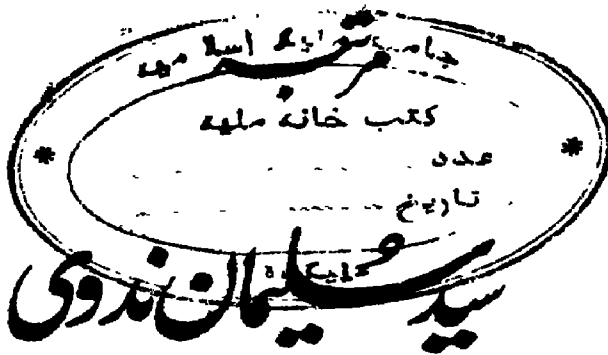 جامعہ ملیہ اسلامیہ
مرتبہ
کتب خانہ ملیہ
عدد
تاریخ
علیگڑھ
سید سلیمان ندوی